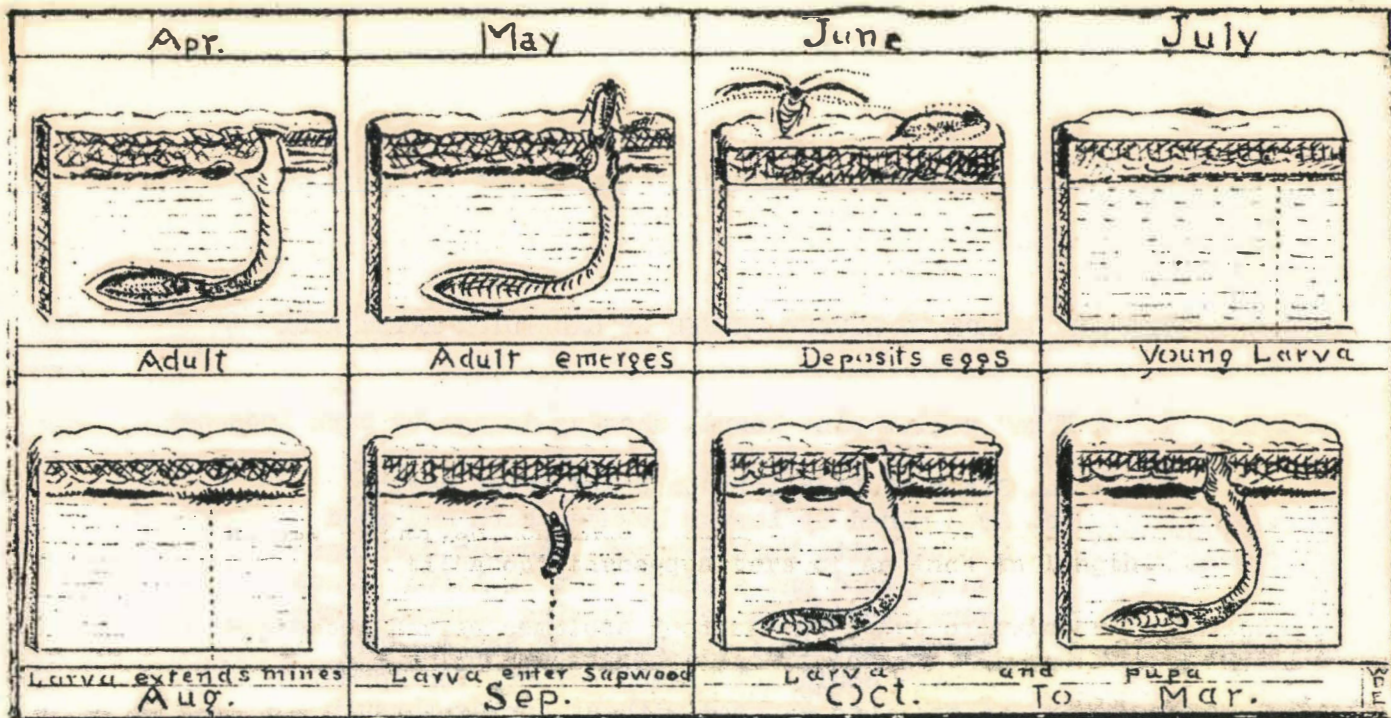 Apr. May June July
Adult Adult emerges Deposits eggs Young Larva
Larva extends mines Larva enter Sapwood Larva and pupa
Aug. Sep. Oct. To Mar.